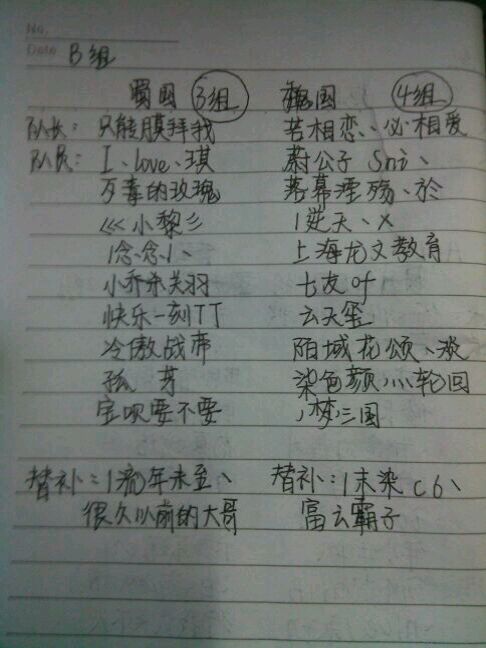 No.
Date B组
蜀国 3组 魏国 4组
队长: 只能膜拜我 若相恋、必相爱
队员: I、love、琪 蔚公子 Sni、
歹毒的玫瑰 落幕湮殇、於
<<< 小黎彡 1逆天、X
1念、念1、 上海龙文教育
小乔杀关羽 七友叶
快乐一刻TT 云天玺
冷傲战帝 陌城花颂、淡
孤 芽 染色颜灬轮回
宝呗要不要 ,梦三国
替补:1流年未至、 替补:1未染c6、
很久以前的大哥 富云霸子